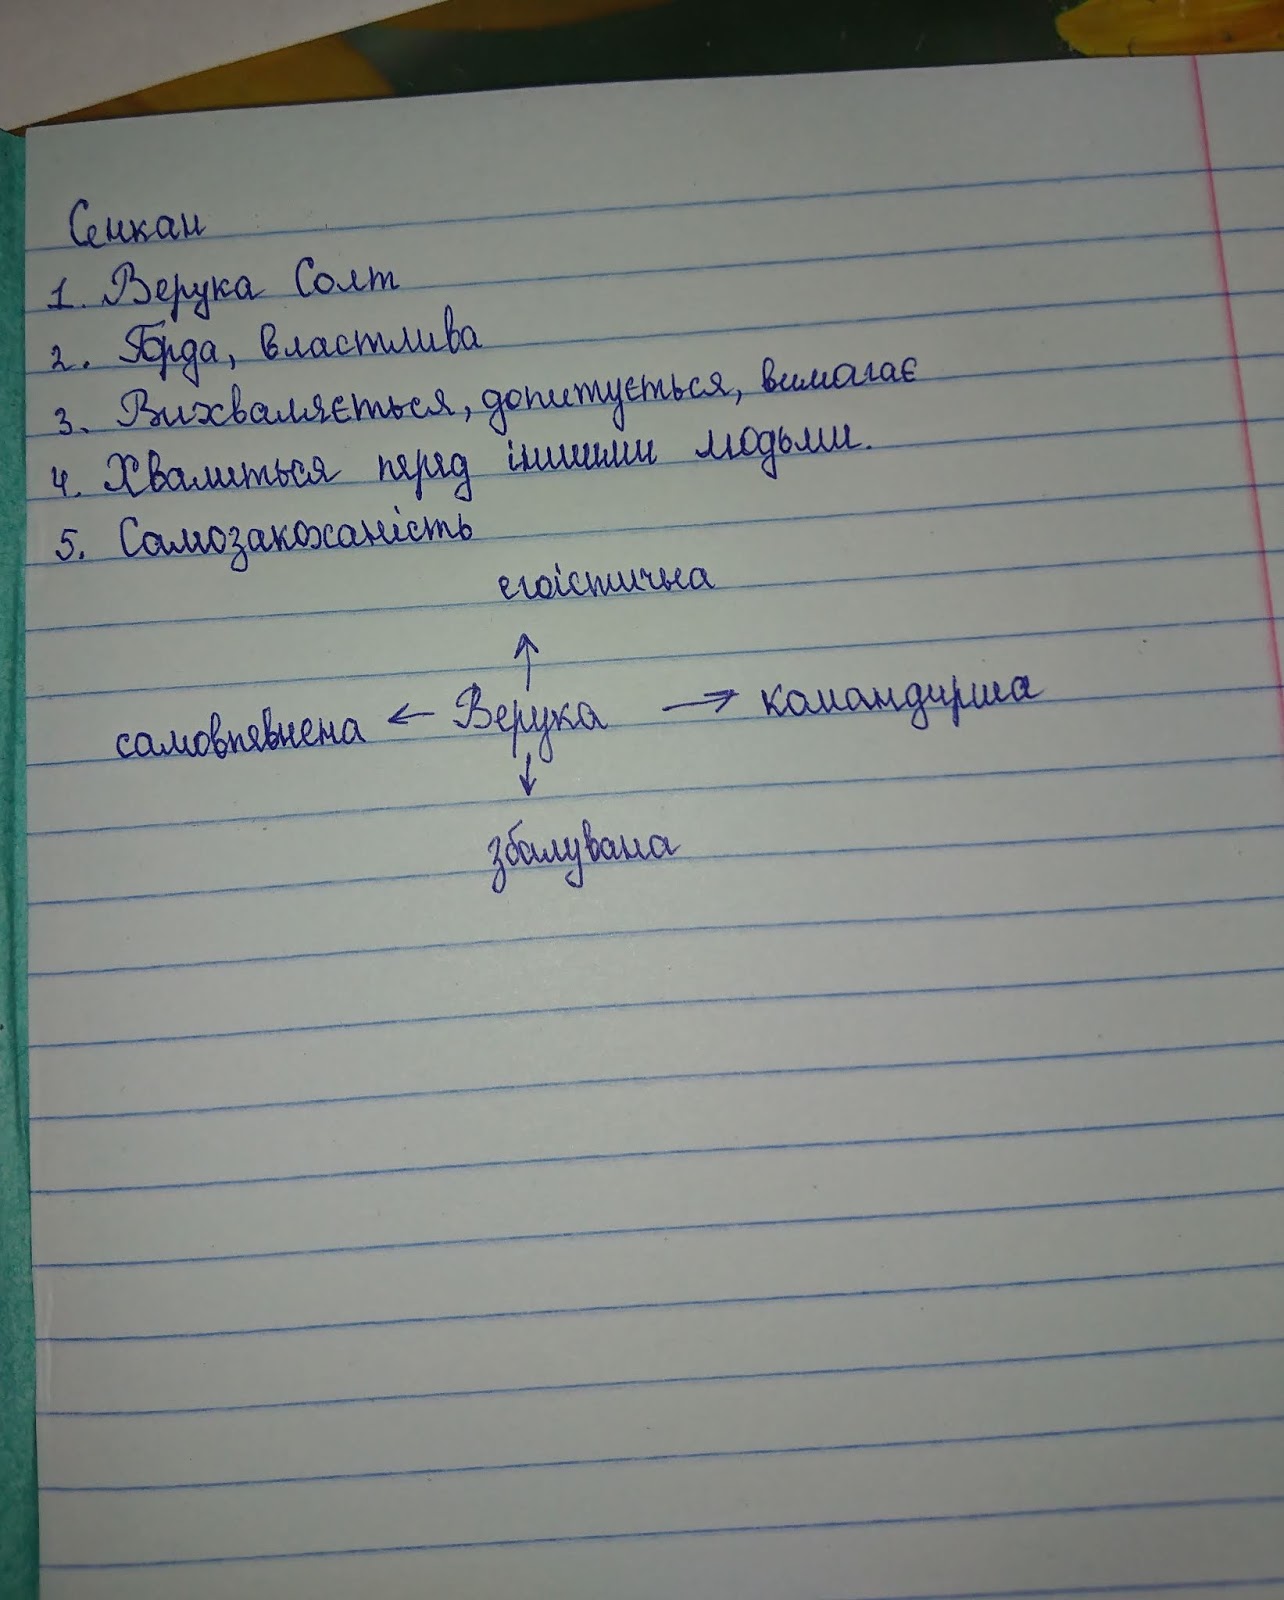 Сенкан
1. Верука Солт
2. Горда, властлива
3. Вихваляється, допитується, вимагає
4. Хвалиться перед іншими людьми.
5. Самозакоханість
егоїстична
самовпевнена ← Верука → командирша
збалувана